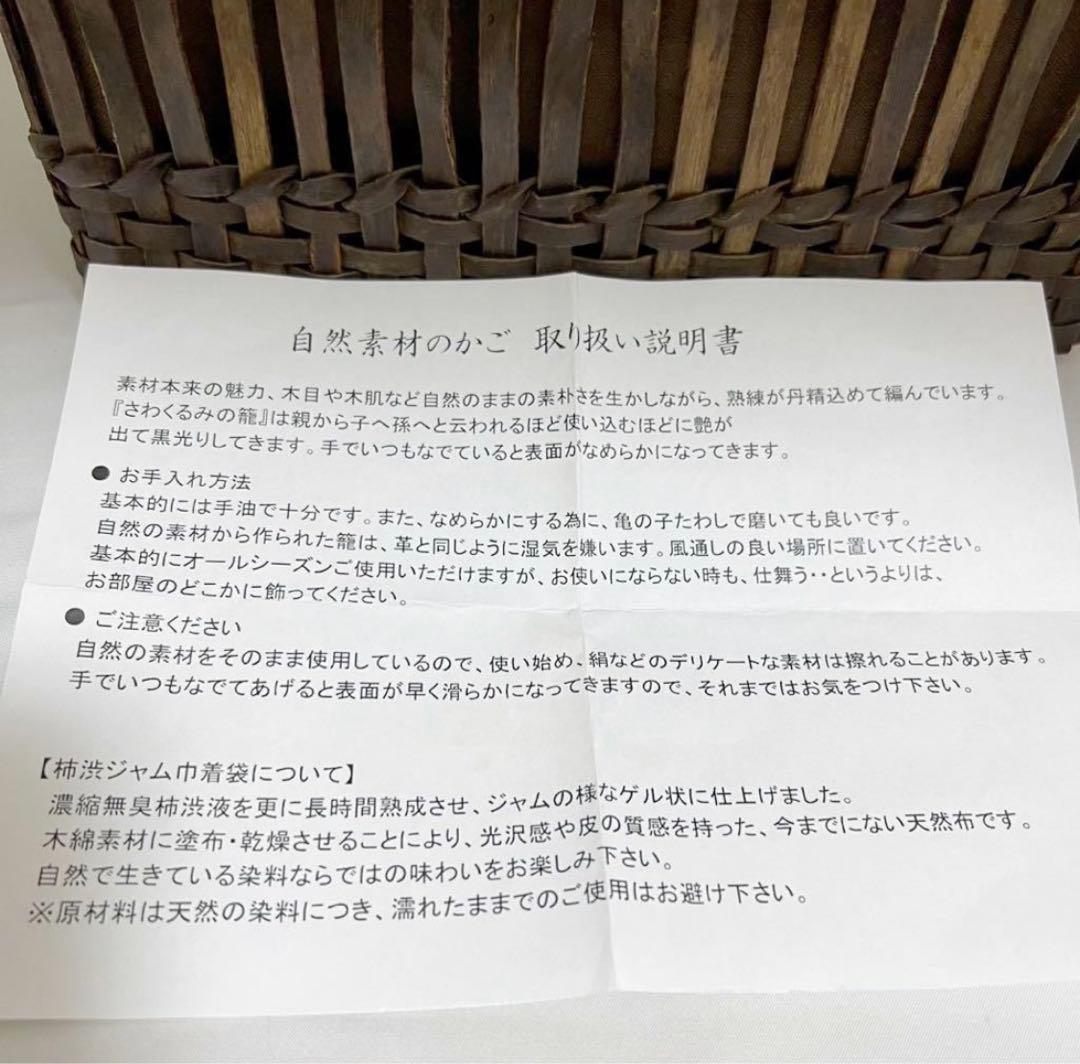 自然素材のかご 取り扱い説明書
素材本来の魅力、木目や木肌など自然のままの素朴さを生かしながら、熟練が丹精込めて編んでいます。
『さわくるみの籠』は親から子へ孫へと云われるほど使い込むほどに艶が
出て黒光りしてきます。手でいつもなでていると表面がなめらかになってきます。
● お手入れ方法
基本的には手油で十分です。また、なめらかにする為に、亀の子たわしで磨いても良いです。
自然の素材から作られた籠は、革と同じように湿気を嫌います。風通しの良い場所に置いてください。
基本的にオールシーズンご使用いただけますが、お使いにならない時も、仕舞う・・というよりは、
お部屋のどこかに飾ってください。
● ご注意ください
自然の素材をそのまま使用しているので、使い始め、絹などのデリケートな素材は擦れることがあります。
手でいつもなでてあげると表面が早く滑らかになってきますので、それまではお気をつけ下さい。
【柿渋ジャム巾着袋について】
濃縮無臭柿渋液を更に長時間熟成させ、ジャムの様なゲル状に仕上げました。
木綿素材に塗布・乾燥させることにより、光沢感や皮の質感を持った、今までにない天然布です。
自然で生きている染料ならではの味わいをお楽しみ下さい。
※原材料は天然の染料につき、濡れたままでのご使用はお避け下さい。